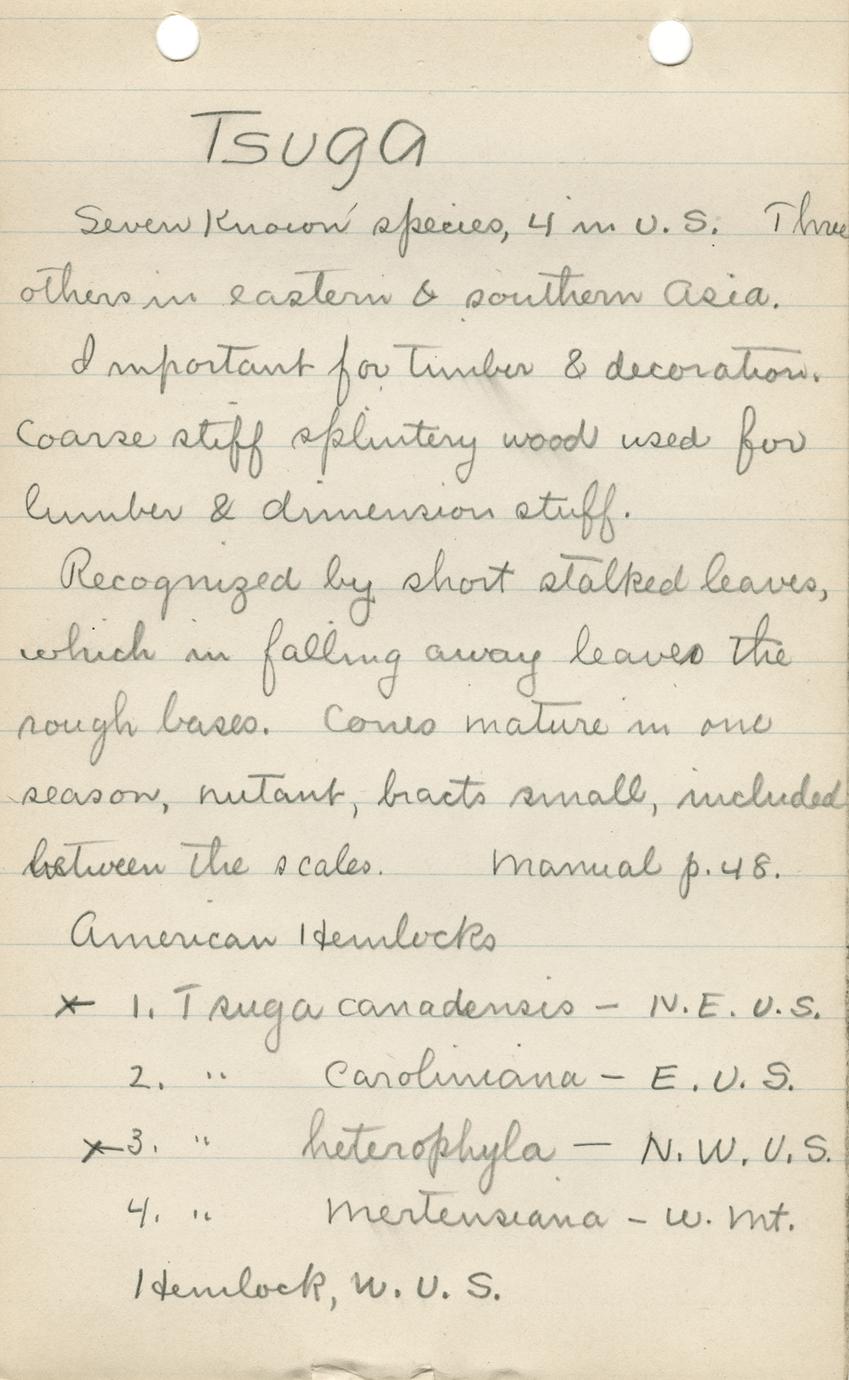 Tsuga
Seven Known species, 4 in U.S. Three
others in eastern & southern Asia.
Important for timber & decoration.
Coarse stiff splintery wood used for
lumber & dimension stuff.
Recognized by short stalked leaves,
which in falling away leaves the
rough bases. Cones mature in one
season, nutant, bracts small, included
between the scales. Manual p. 48.
American Hemlocks
x 1. Tsuga canadensis – N.E. U.S.
2. " Caroliniana – E. U. S.
x 3. " heterophyla — N. W. U. S.
4. " Mertensiana – W. Mt.
Hemlock, W. U. S.